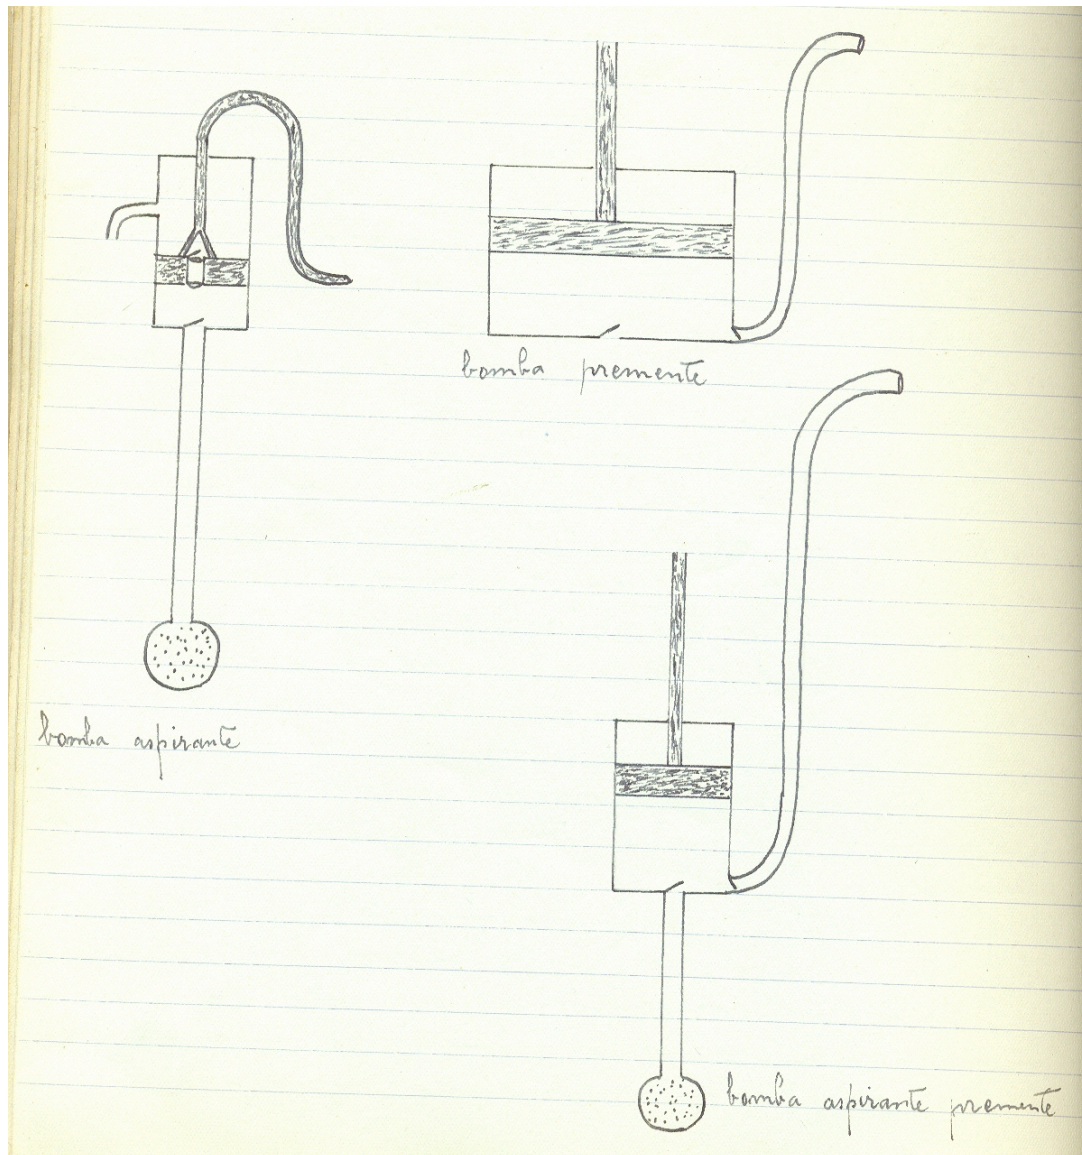 bomba premente
bomba aspirante
bomba aspirante premente